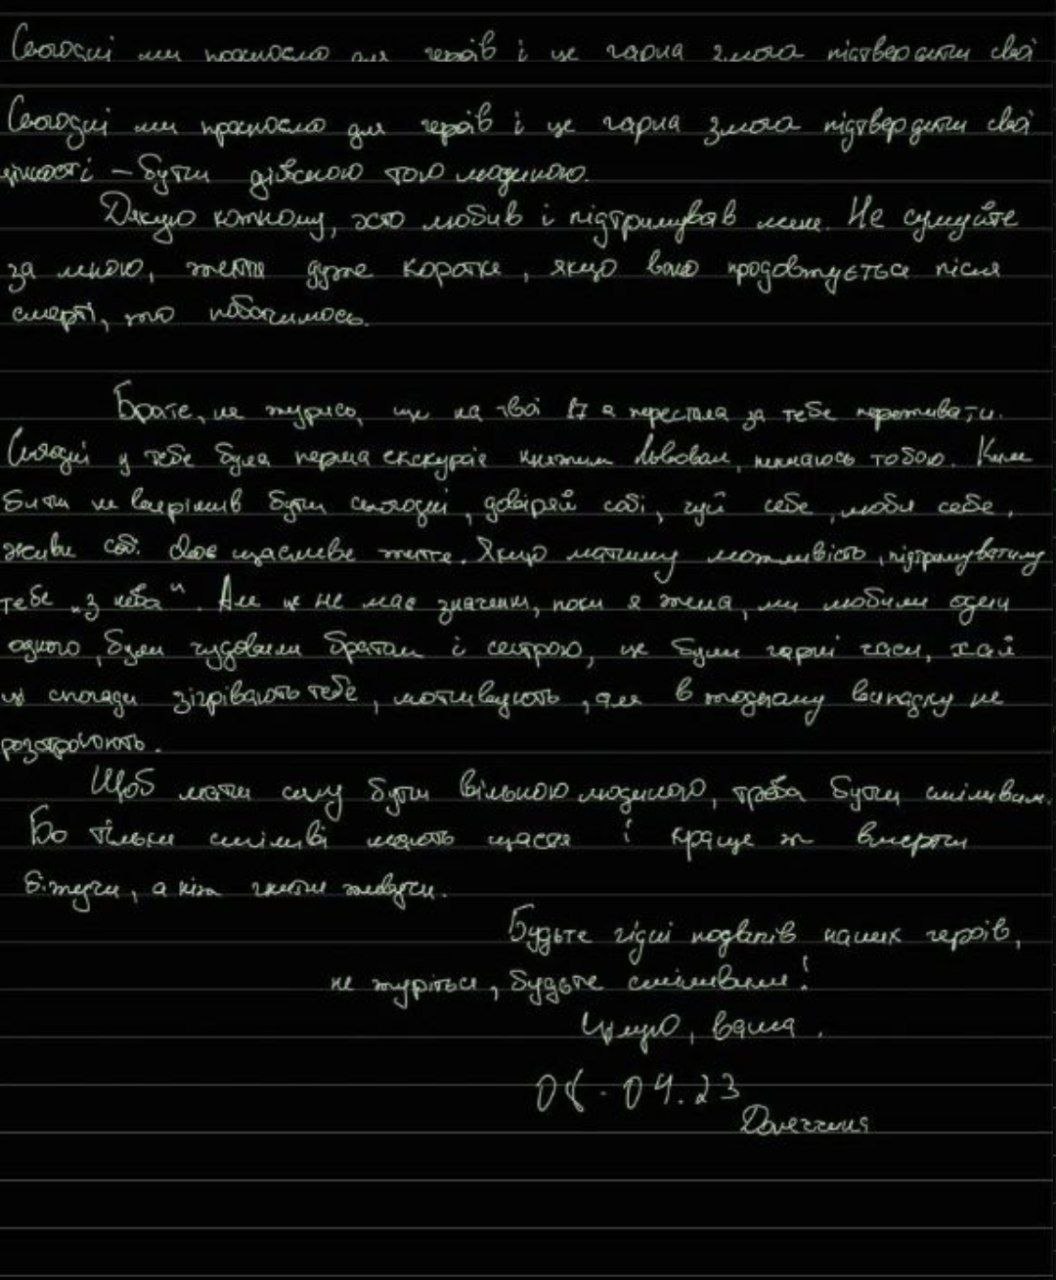 Сьогодні ми прокнось для героїв і це гарна змога підтвердити свої
Сьогодні ми для героїв і це гарна змога підтвердити свої
цінності – бути дійсною того людиною.
Дякую кожному, хто любив і підтримував мене. Не сумуйте
за мною, життя дуже коротке, якщо воно продовжується після
смерті, то побачимось.
Брате, не журись, ще на твої 17 я перестала за тебе переживати.
Сьогодні у тебе була перша екскурсія Львовом, пишаюсь тобою. Ким
би ти не вирішив бути сьогодні, довіряй собі, чуй себе, люби себе,
живи собі своє щасливе життя. Якщо матиму можливість, підтримуватиму
тебе „з неба". Але це не має значення, поки я жила, ми любили один
одного, були чудовими братом і сестрою, це були гарні часи, хай
ці спогади зігрівають тебе, мотивують, але в жодному випадку не
розстроюють.
Щоб мати силу бути вільною людиною, треба бути сміливим.
Бо тільки сміливі мають щастя і краще ж вмерти
біжучи, а ніж гнити живучи.
Будьте гідні подвигів наших героїв,
не журіться, будьте сміливими!
Цілую, ваша.
08.04.23
Донеччина